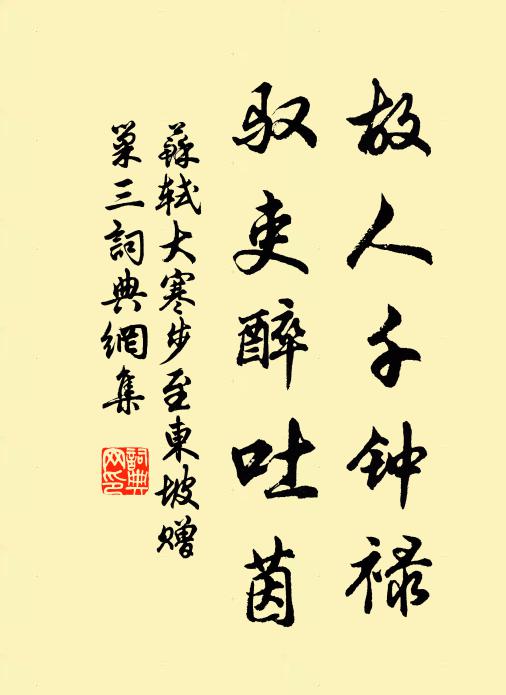 故人千钟禄
驭吏醉吐茵
蘇軾大寒步至東坡赠
巢三詞典網集
詞典
网印